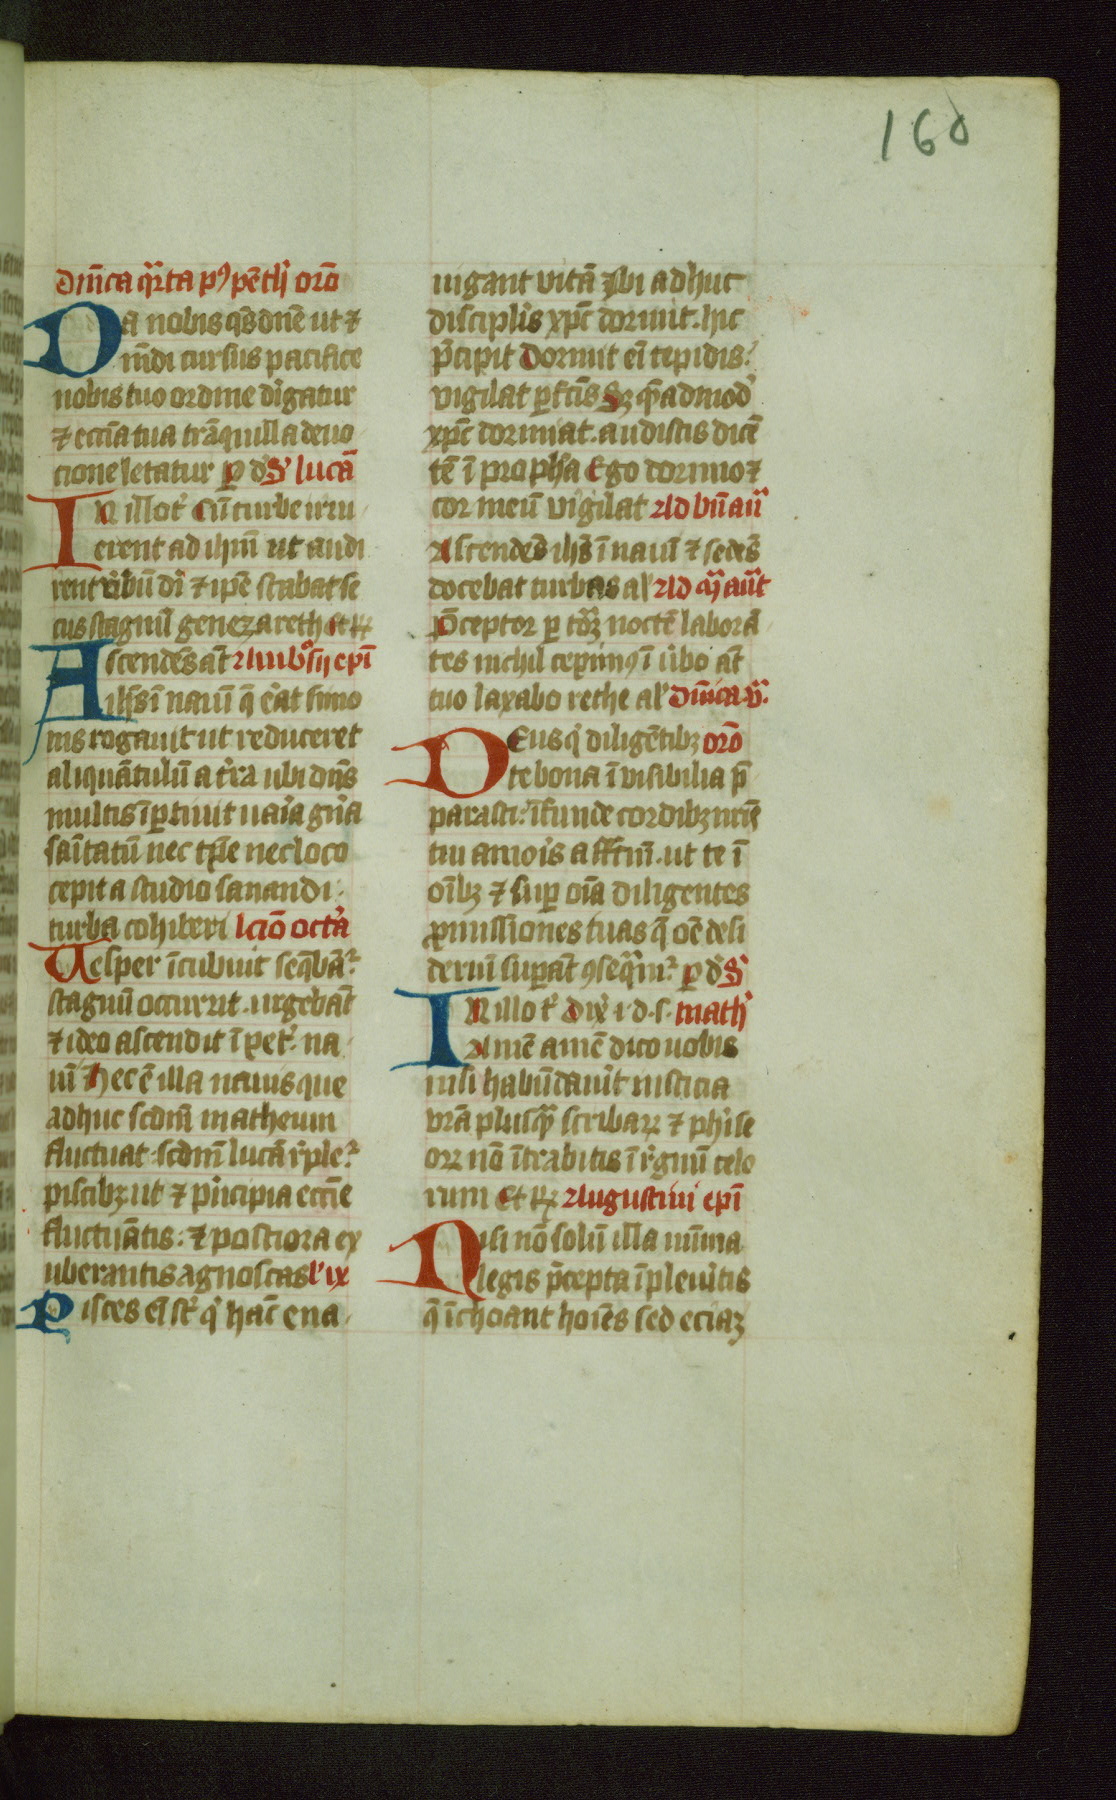 160
Dnica qrta p9 pēth orō
Da nobis qs dne ut ⁊
mūdi cursus pacifice
nobis tuo ordine dirigatur
⁊ eccīa tua trāquilla deuo
cione letatur p d S' lucā
IN illo t' Cū turbe irru
erent ad ihm ut audi
rent ubū di ⁊ ipē stabat se
cus stagnū genezareth Et R
Ascendēs āt Ambsij epī
ihs ī nauī q̄ erat simo
nis rogauit ut reduceret
aliquātulū a tra ubi dns
multis īptiuit uaria gnia
sāitatū nec tpe nec loco
cepit a studio sanandi:
turba cohiberi lcio octa
Uesper īcubuit seqbat
stagnū occurrit. urgebāt
⁊ ideo ascendit ī pet' na
uī hec ē illa nauis que
adhuc scdm matheum
fluctuat. scdm lucā rple
piscibz ut ⁊ pncipia eccīe
fluctuātis: ⁊ postiora ex
uberantis agnoscas l' ix
Pisces eī st' q' hāc ena
uigant vitā Ibi adhuc
discipls xpc dormit. hic
pcipit Dormit eī tepidis:
vigilat pfcīs Sz qadmod'
xpc dormiat. audistis dicē
tē ī propha Ego dormio ⁊
cor meū vigilat Ad bn añ
Ascendēs ihs ī nauī ⁊ sedēs
docebat turbas al' Ad m añt
Pceptor p totā noctē laborā
tes nichil cepim9 ī ubo āt
tuo laxabo rethe al' Dnica v
DEus q' diligētibz orō
te bona īvisibilia p
parasti: īfunde cordibz nris
tui amoris affcm. ut te ī
oībz ⁊ sup oīa diligentes
pmissiones tuas q̄ oē desi
deriū supāt 9seqm' p d S'
IN illo t' Dix i. d. s. math
Amē amē dico uobis
nisi habūdauit iusticia
vra plusq scribarR ⁊ phise
oR nō ītrabitis ī rgnū celo
rum Et R Augustini epī
Nisi nō solū illa minima
legis pcepta īpleuitis
q̄ īchoant hoīes sed eciaz